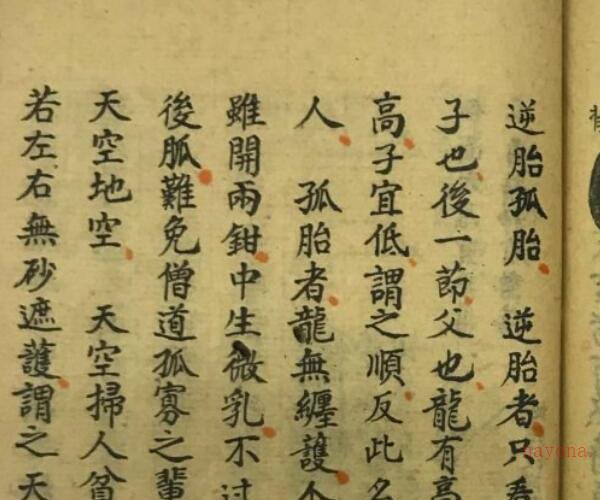 逆胎孤胎　逆胎者只
子也後一節父也龍有
高子宜低謂之順反此
人　孤胎者龍無纏護
雖開兩鉗中生微乳不过
後脈難免僧道孤寡之輩
天空地空　天空掃人貧
若左右無砂遮護謂之天
nayona